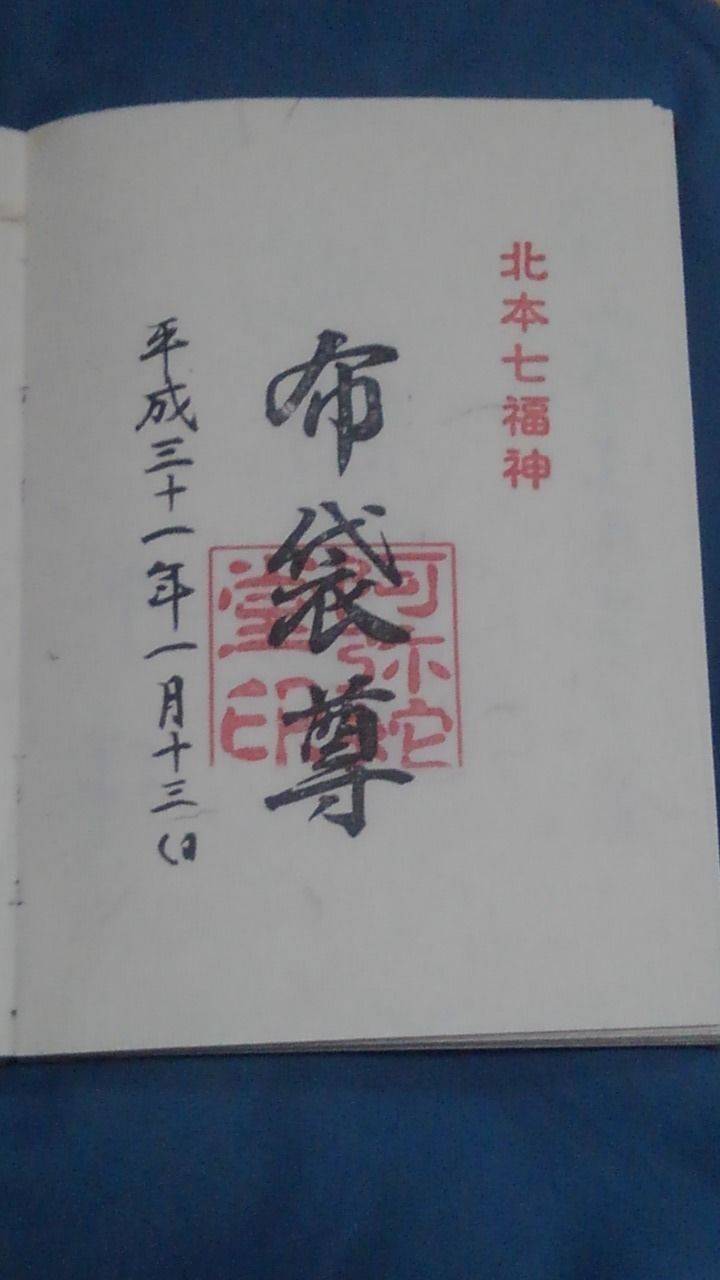 北本七福神
布袋尊
阿弥陀堂印
平成三十一年一月十三日